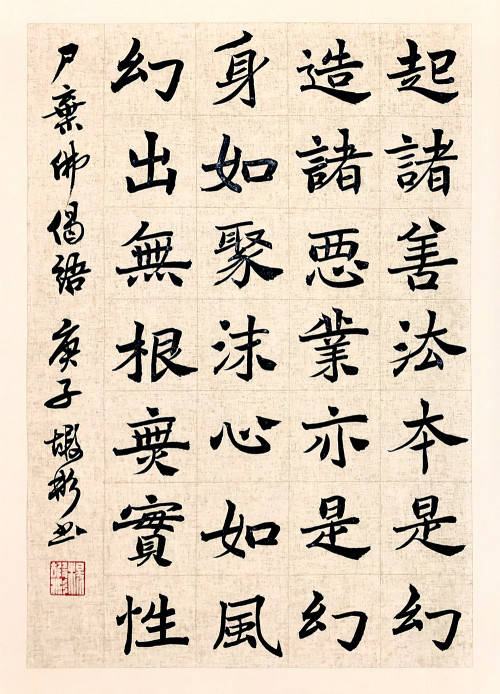 起諸善法本是幻
造諸悪業亦是幻
身如聚沫心如風
幻出無根無實性
尸棄佛偈語 庚子 彬书